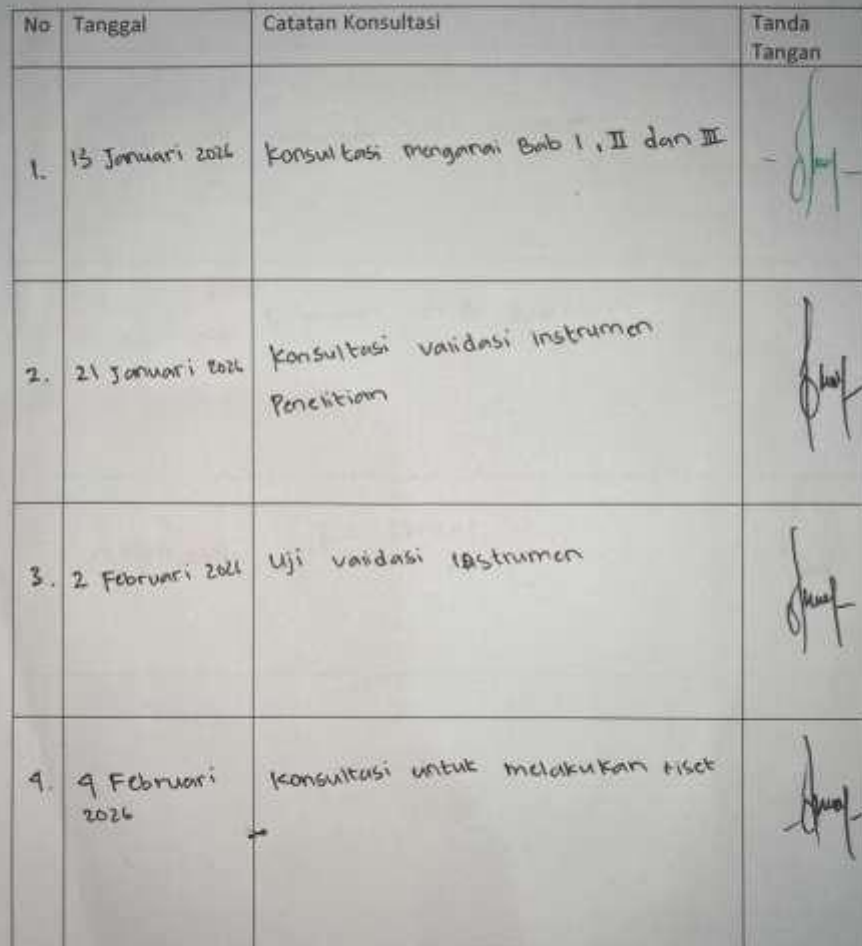 No Tanggal Catatan Konsultasi Tanda
Tangan
1. 13 Januari 2026 Konsultasi menganai Bab I, II dan III
2. 21 Januari 2026 Konsultasi validasi instrumen
Penelitian
3. 2 Februari 2026 Uji validasi instrumen
4. 4 Februari Konsultasi untuk melakukan riset
2026